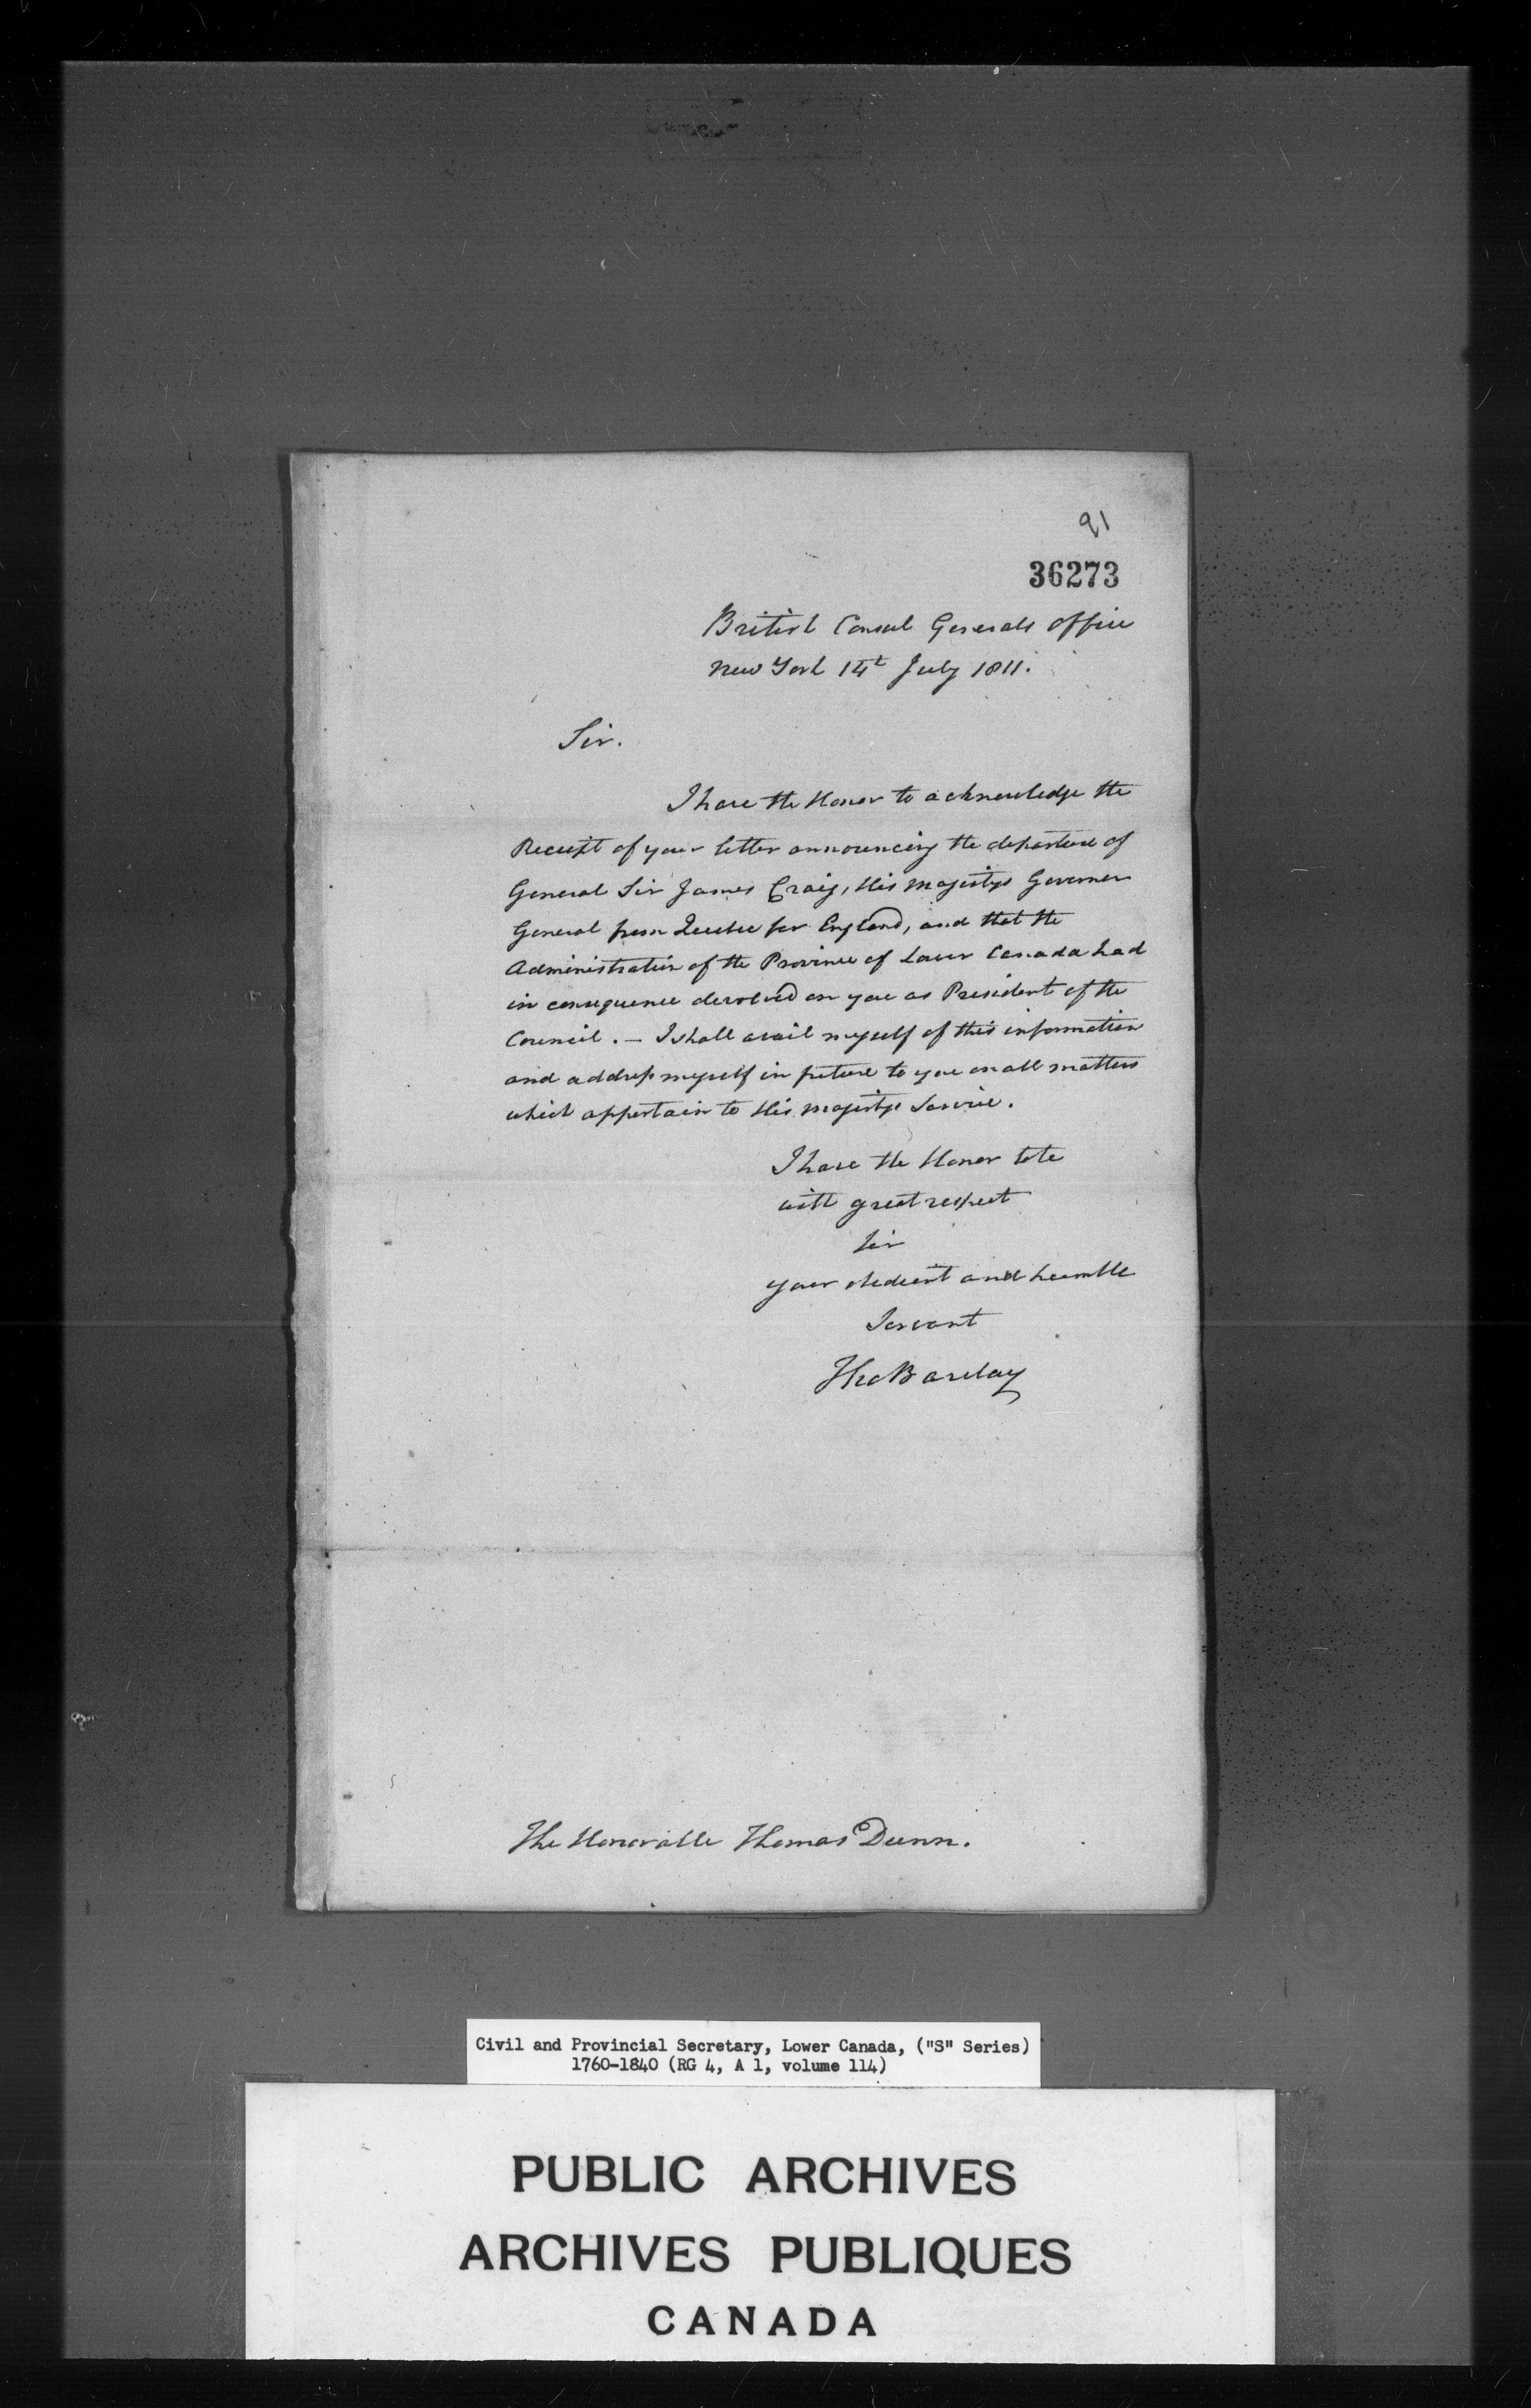 91
36273
British Consul Generals office
New York 14t July 1811.
Sir.
I have the Honor to acknowledge the
Receipt of your letter announcing the departure of
General Sir James Craig, His Majestys Governor
General from Quebec for England, and that the
Administration of the Province of Lower Canada had
in consequence devolved on you as President of the
Council. — I shall avail myself of this information
and address myself in future to you on all matters
which appertain to His Majestys Service.
I have the Honor to be
with great respect
Sir
your obedient and humble
Servant
Tho Barclay
The Honorable Thomas Dunn.
Civil and Provincial Secretary, Lower Canada, ("S" Series)
1760-1840 (RG 4, A 1, volume 114)
PUBLIC ARCHIVES
ARCHIVES PUBLIQUES
CANADA